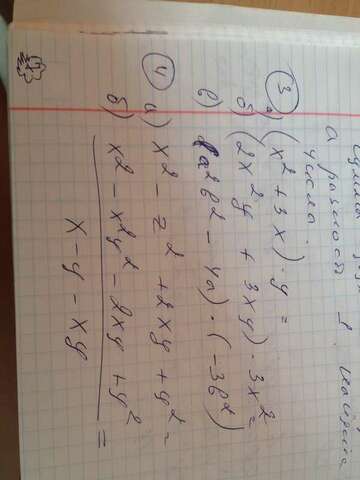 а разность 2.
числа.
③ а) (x² + 3x) · y =
б) (2x²y + 3xy) · 3x² =
в) (a²b² - 4a) · (-3b²)
④ а) x² - z² + 2xy + y² =
б) x² - x²y² - 2xy + y² =
x - y - xy